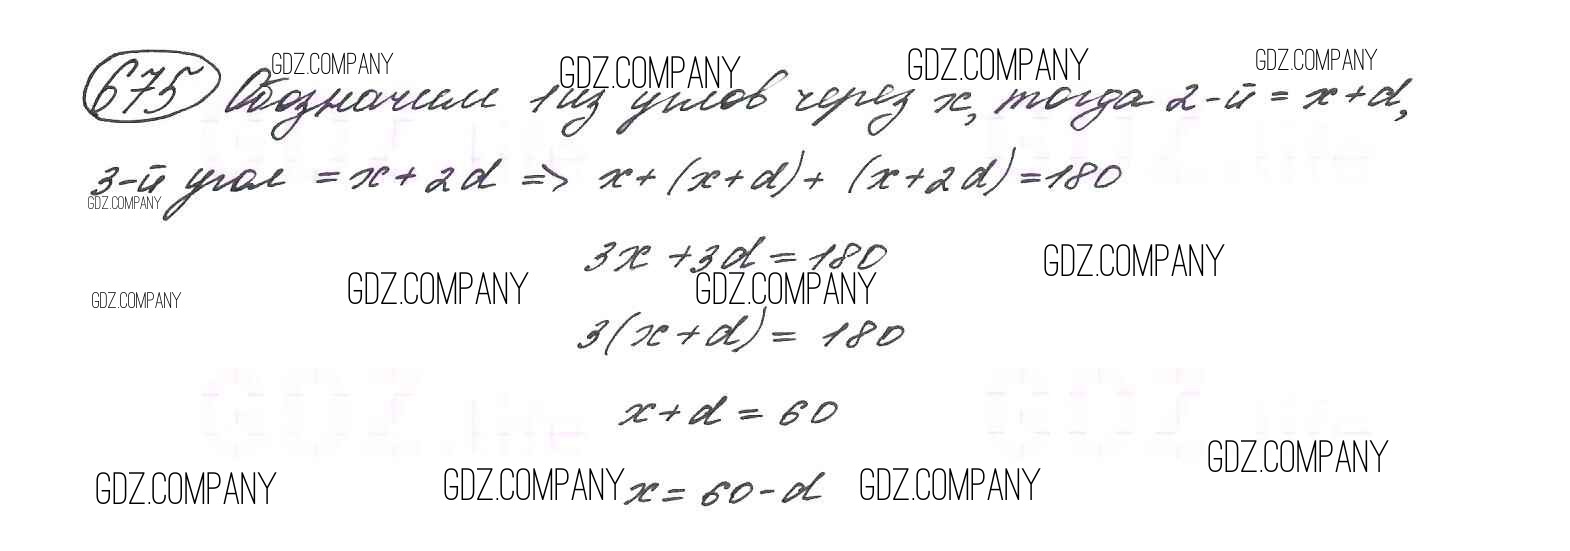 GDZ.COMPANY GDZ.COMPANY GDZ.COMPANY GDZ.COMPANY
675 Обозначим 1 из углов через x, тогда 2-й = x+d,
3-й угол = x+2d => x+(x+d)+(x+2d)=180
GDZ.COMPANY
3x+3d=180
GDZ.COMPANY
GDZ.COMPANY GDZ.COMPANY GDZ.COMPANY
3(x+d)=180
x+d=60
GDZ.life GDZ.life
GDZ.COMPANY
GDZ.COMPANY GDZ.COMPANY x=60-d GDZ.COMPANY